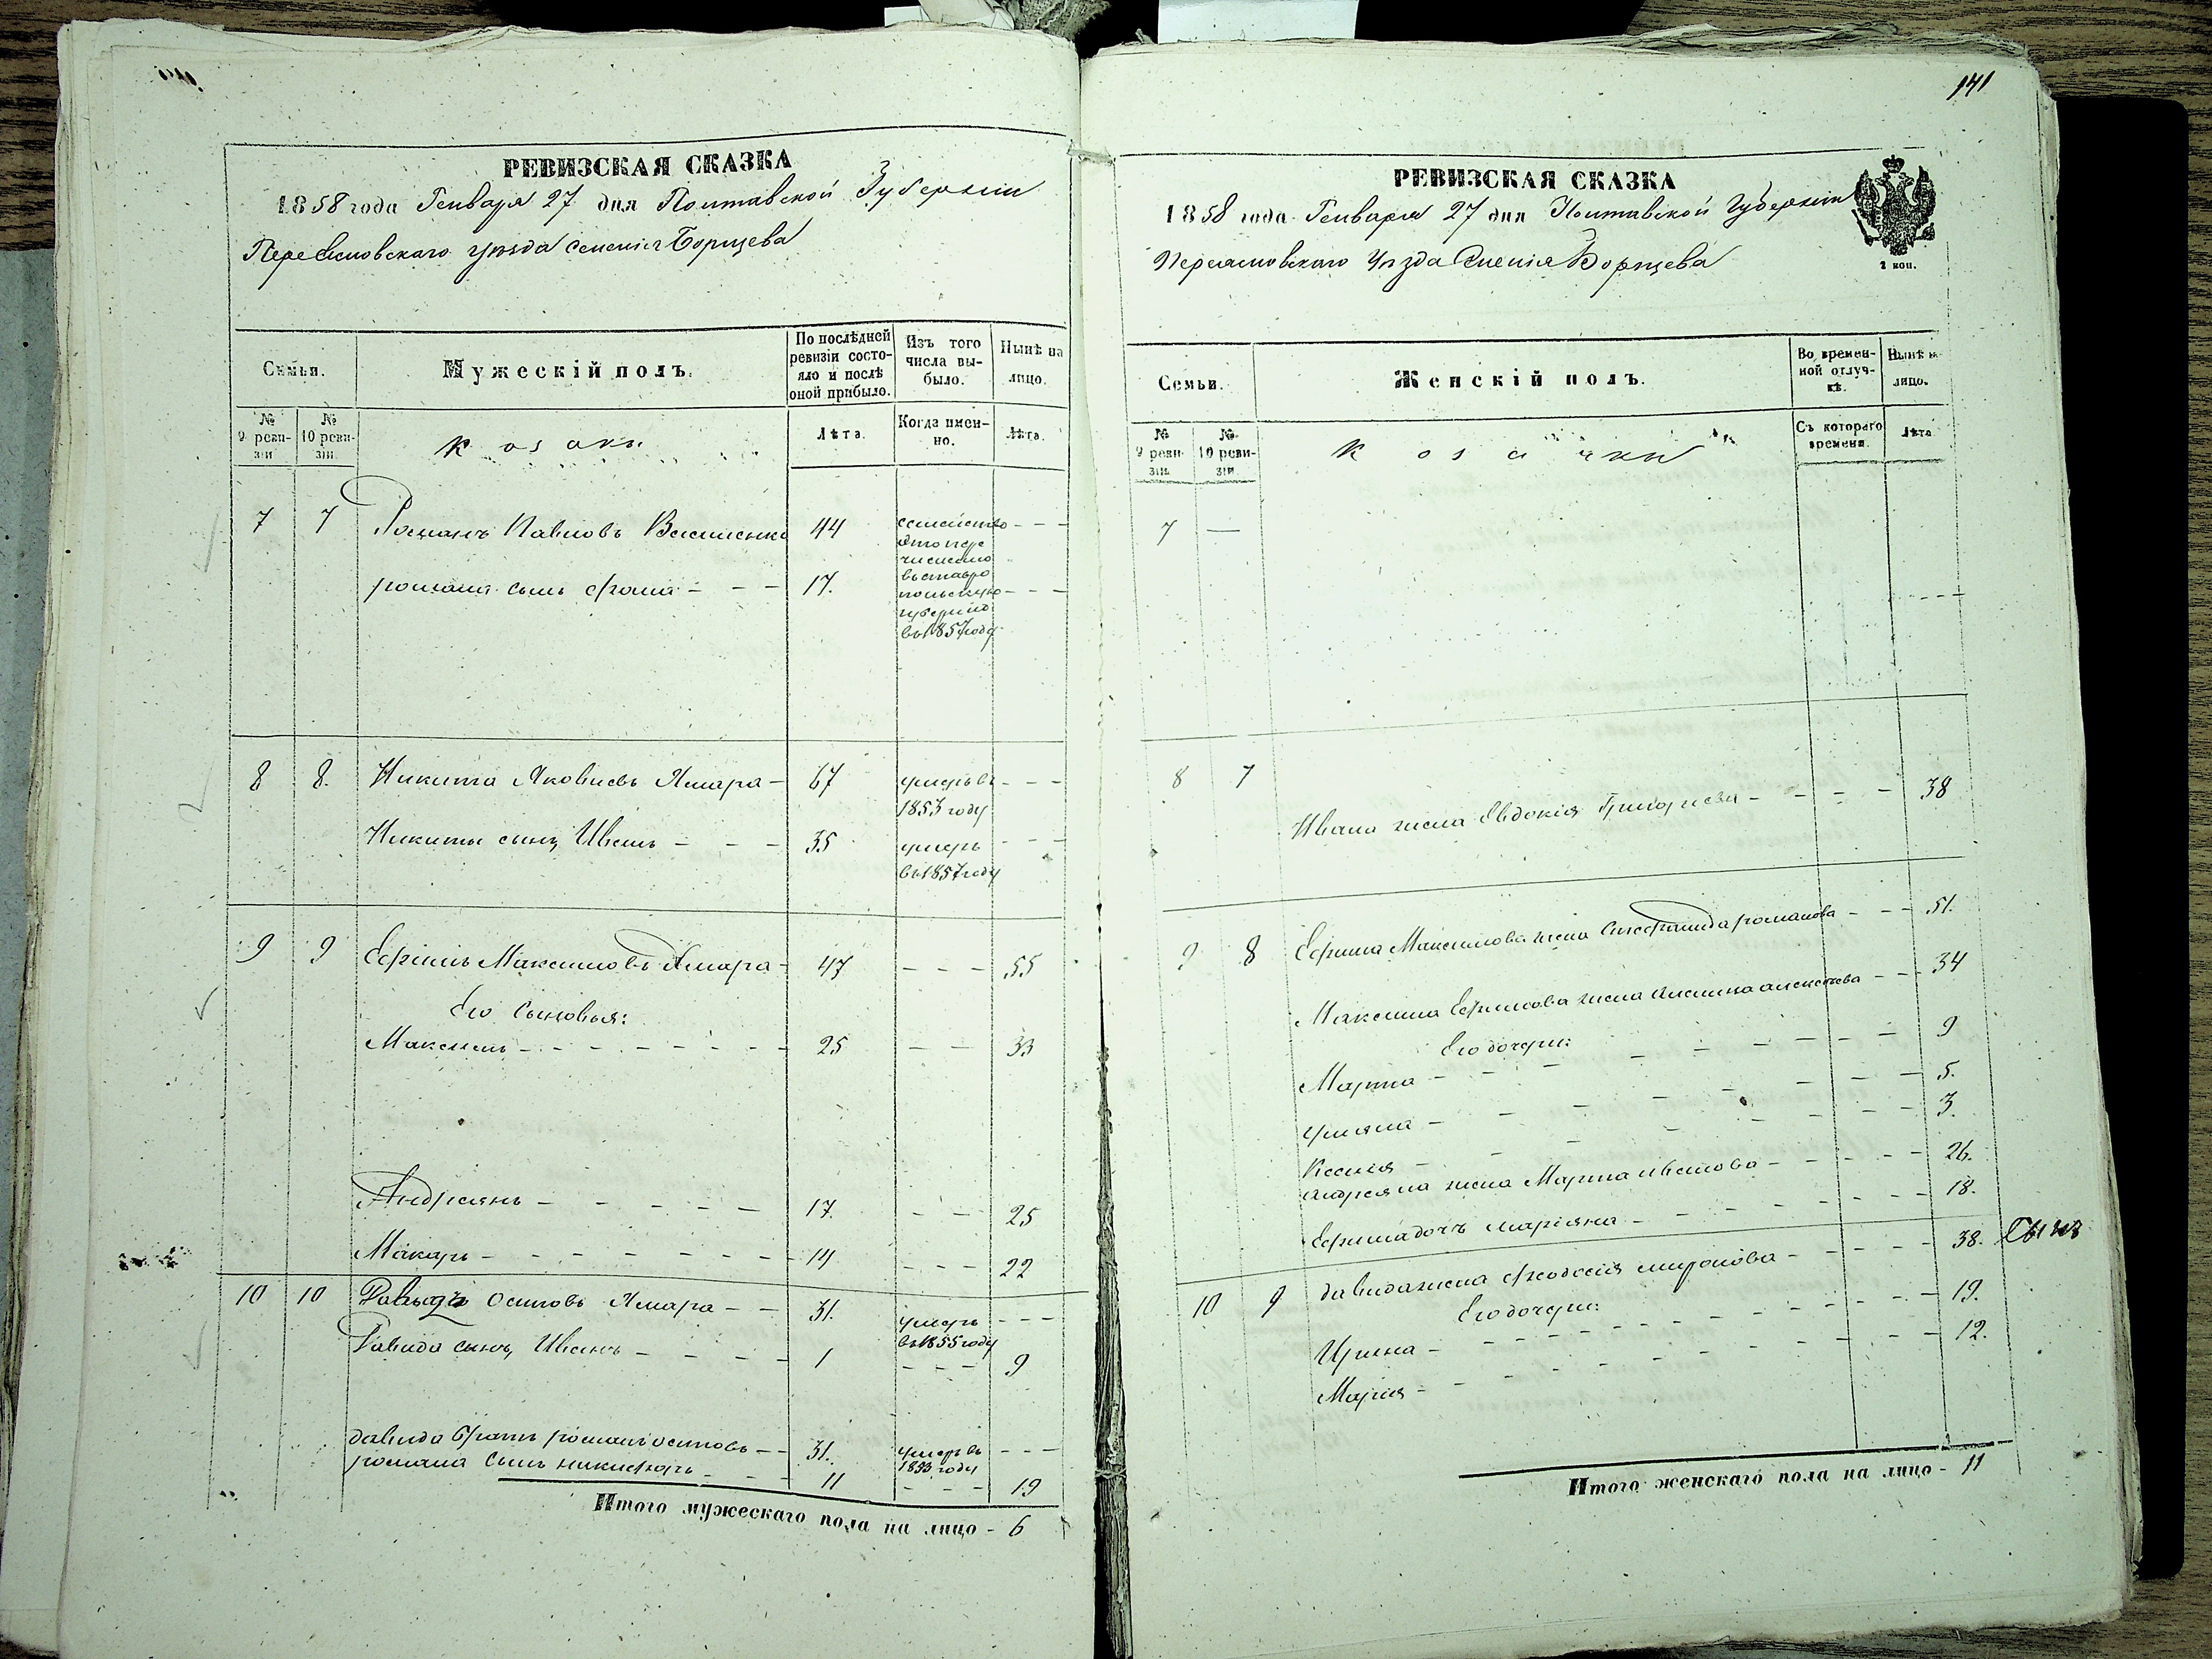 РЕВИЗСКАЯ СКАЗКА
1858 года Генваря 27 дня Полтавской Губерніи
Переяславскаго уезда селенія Борщева
Семьи.
Мужескій полъ.
По послѣдней ревизіи состояло и послѣ оной прибыло.
Изъ того числа выбыло.
Нынѣ на лицо.
№ 9 ревизіи
№ 10 ревизіи.
Козаки
Лѣта.
Когда именно.
Лѣта.
7 7 Романъ Павловъ 44 семейство
это пере
числено
въ ставро
Романа сынъ Фома - - - 17. польскую - - -
губернію
въ 1857 году
8 8. Никита Яковлевъ Ямара - 67 умеръ въ - - -
1853 году
Никиты сынъ Иванъ - - - 35 умеръ - - -
въ 1857 году
9 9 Ефимъ Максимовъ Ямара - 47 - - - 55
Его сыновья:
Максимъ - - - - - - - - 25 - - 33
Андреянъ - - - - - - 17. - - 25
Макаръ - - - - - - - - 14 - - - 22
10 10 Давыдъ Осиповъ Ямара - - 31. умеръ - - -
въ 1855 году
Давида сынъ Иванъ - - - - 1 - - - 9
давида братъ романъ осиповъ - - 31. умеръ въ - - -
1853 году
романа сынъ никифоръ - - - 11 - - - 19
Итого мужескаго пола на лицо - 6
141
РЕВИЗСКАЯ СКАЗКА
1858 года Генваря 27 дня Полтавской Губерніи
Переяславскаго Уезда Селенія Борщева
2 коп.
Семьи.
Женскій полъ.
Во временной отлучкѣ.
Нынѣ на лицо.
№ 9 ревизіи.
№ 10 ревизіи.
Козачки
Съ котораго времени.
Лѣта
7 —
8 7
Ивана жена Евдокія Григориева - - - - 38
9 8 Ефима Максимова жена романова - - - 51.
Максима Ефимова жена алексѣева - - - 34
Его дочери:
Марта - - - - - - - 9
Уляна - - - - - - - 5.
Ксенія - - - - - - - 3.
андреяна жена Марта иванова - - - - - 26.
Ефима дочь маріяна - - - - - - 18.
10 9 давида жена Феодосія миронова - - - - 38.
Его дочери:
Ирина - - - - - - - - 19.
Марія - - - - - - - - 12.
Итого женскаго пола на лицо - 11